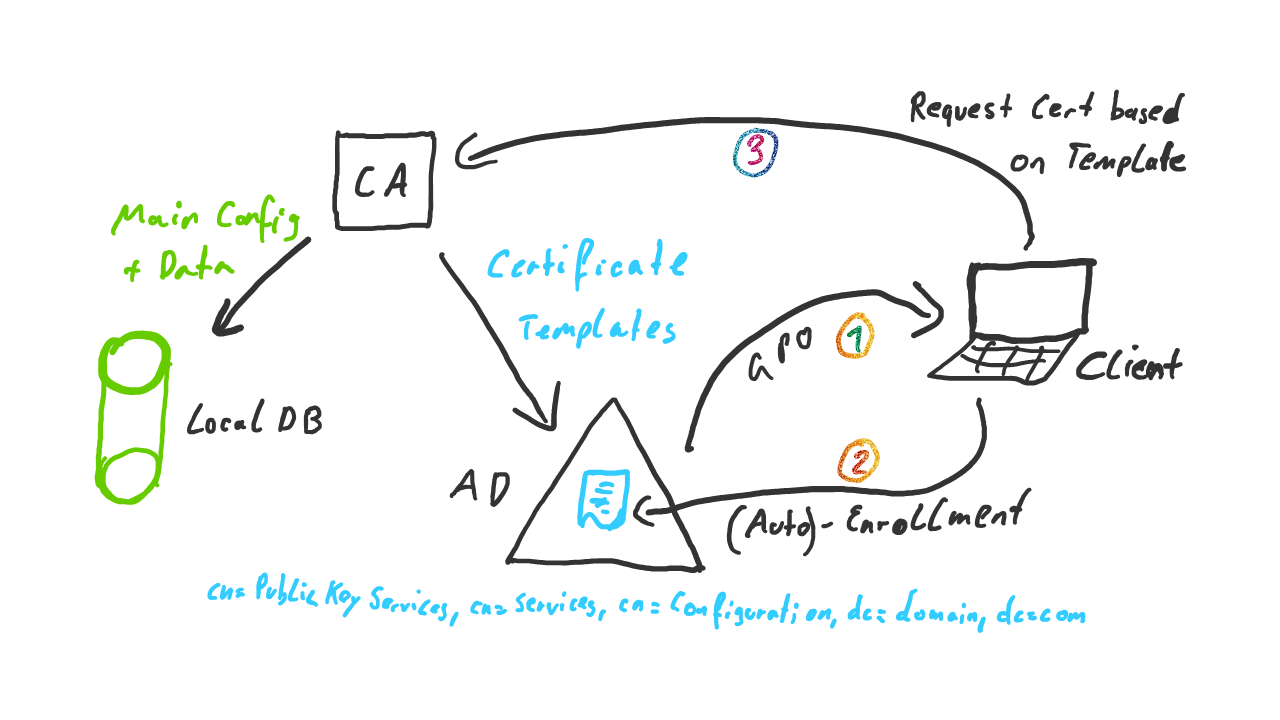 Request Cert based
on Template
3
CA
Main Config
+ Data
Certificate
Templates
GPO
1
Client
Local DB
AD
2
(Auto)-Enrollment
cn=Public Key Services, cn=Services, cn=Configuration, dc=domain, dc=com